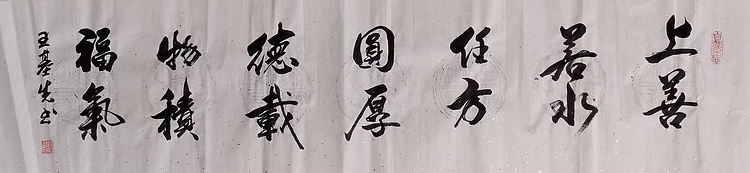 上善
若水
任方
圓厚
德載
物積
福氣
王基先书